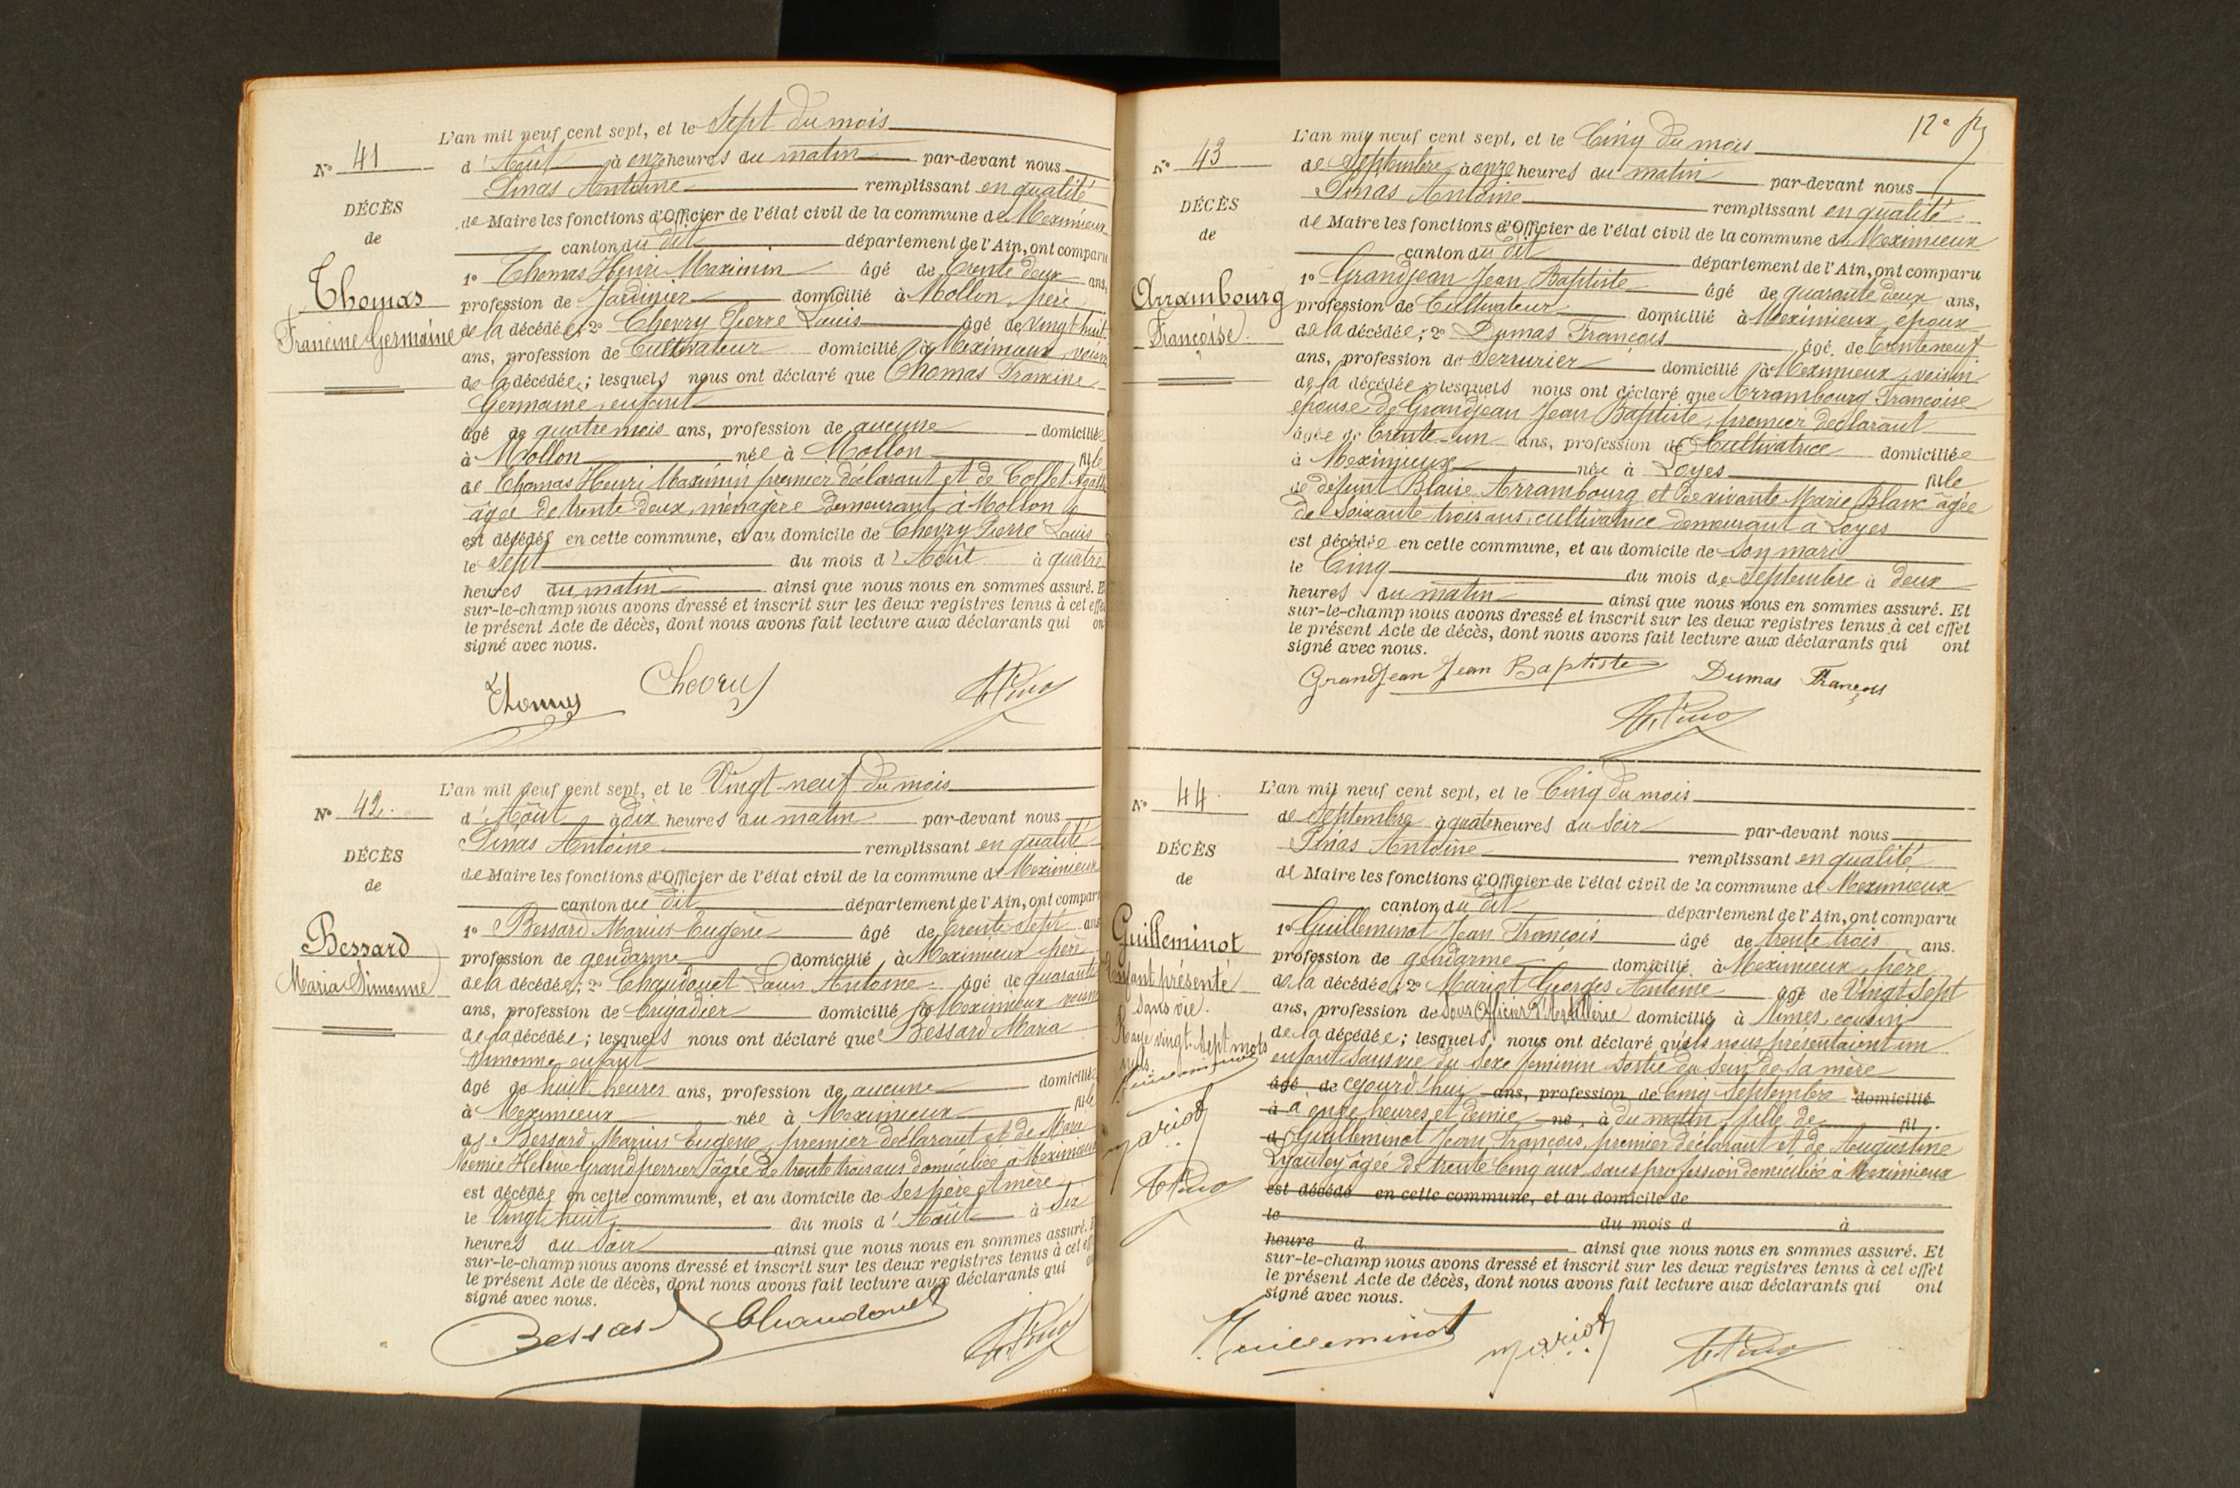 L'an mil neuf cent sept, et le Sept du mois
N° 41
d'Août à onze heures du matin par-devant nous
Pinas Antoine remplissant en qualité
DÉCÈS
de Maire les fonctions d'Officier de l'état civil de la commune de Meximieux
de
canton du dit département de l'Ain, ont comparu
1° Thomas Henri Maximin âgé de trente deux ans,
Thomas
profession de Jardinier domicilié à Mollon, père
Francine Germaine
de la décédée; 2° Chevry Pierre Louis âgé de vingt huit
ans, profession de Cultivateur domicilié à Meximieux, voisin
de la décédée; lesquels nous ont déclaré que Thomas Francine
Germaine, enfant
âgé de quatre mois ans, profession de aucune domiciliée
à Mollon née à Mollon fille
de Thomas Henri Maximin premier déclarant et de Collet Agathe
âgée de trente deux, ménagère demeurant à Mollon
est décédée en cette commune, et au domicile de Chevry Pierre Louis
le Sept du mois d'Août à quatre
heures du matin ainsi que nous nous en sommes assuré. E
sur-le-champ nous avons dressé et inscrit sur les deux registres tenus à cet effet
le présent Acte de décès, dont nous avons fait lecture aux déclarants qui on
signé avec nous.
Thomas Chevry
L'an mil neuf cent sept, et le Vingt-neuf du mois
N° 42.
d'Août à dix heures du matin par-devant nous
Pinas Antoine remplissant en qualité
DÉCÈS
de Maire les fonctions d'Officier de l'état civil de la commune de Meximieux
de
canton du dit département de l'Ain, ont comparu
1° Bessard Marius Eugène âgé de trente sept ans
Bessard
profession de gendarme domicilié à Meximieux père
Maria Simonne
de la décédée; 2° Chaudouet Louis Antoine âgé de quarante
ans, profession de brigadier domicilié à Meximieux voisin
de la décédée; lesquels nous ont déclaré que Bessard Maria
Simonne enfant
âgé de huit heures ans, profession de aucune domiciliée
à Meximieux née à Meximieux fille
de Bessard Marius Eugène, premier déclarant et de Marie
Hélène Grandperrier âgée de trente trois ans domiciliée à Meximieux
est décédée en cette commune, et au domicile de ses père et mère
le Vingt huit du mois d'Août à Six
heures du Soir ainsi que nous nous en sommes assuré. E
sur-le-champ nous avons dressé et inscrit sur les deux registres tenus à cet eff
le présent Acte de décès, dont nous avons fait lecture aux déclarants qui
signé avec nous.
Bessard Chaudouet
12e
L'an mil neuf cent sept, et le Cinq du mois
N° 43
de Septembre à onze heures du matin par-devant nous
Pinas Antoine remplissant en qualité
DÉCÈS
de Maire les fonctions d'Officier de l'état civil de la commune de Meximieux
de
canton du dit département de l'Ain, ont comparu
1° Grandjean Jean Baptiste âgé de quarante deux ans,
Arrambourg
profession de Cultivateur domicilié à Meximieux, époux
Françoise.
de la décédée; 2° Dumas François âgé de trente neuf
ans, profession de Serrurier domicilié à Meximieux, voisin
de la décédée lesquels nous ont déclaré que Arrambourg Françoise
épouse de Grandjean Jean Baptiste, premier déclarant
âgée de trente-un ans, profession de Cultivatrice domiciliée
à Meximieux née à Loyes fille
de défunt Blaise Arrambourg et de vivante Marie Blanc âgée
de soixante trois ans, cultivatrice demeurant à Loyes
est décédée en cette commune, et au domicile de son mari
le Cinq du mois de Septembre à deux
heures du matin ainsi que nous nous en sommes assuré. Et
sur-le-champ nous avons dressé et inscrit sur les deux registres tenus à cet effet
le présent Acte de décès, dont nous avons fait lecture aux déclarants qui ont
signé avec nous.
Grandjean Jean Baptiste Dumas François
L'an mil neuf cent sept, et le Cinq du mois
N° 44.
de Septembre à quatre heures du Soir par-devant nous
Pinas Antoine remplissant en qualité
DÉCÈS
de Maire les fonctions d'Officier de l'état civil de la commune de Meximieux
de
canton du dit département de l'Ain, ont comparu
1° Guilleminot Jean François âgé de trente trois ans.
Guilleminot
profession de gendarme domicilié à Meximieux, père
Enfant présenté
de la décédée; 2° Mariot Georges Antoine âgé de Vingt Sept
sans vie.
ans, profession de Sous Officier d'Artillerie domicilié à Nîmes, cousin
Rayé vingt-sept mots
de la décédée; lesquels, nous ont déclaré qu'ils nous présentaient un
nuls.
enfant sans vie du sexe féminin sortie du sein de sa mère
Guilleminot
âgé de cejourd'hui ans, profession de Cinq Septembre domicilié
à à onze heures et demie né, à du matin, fille de fil
Mariot
d Guilleminot Jean François, premier déclarant et de Augustine
Lyautey âgée de trente cinq ans sans profession domiciliée à Meximieux
est décédé en cette commune, et au domicile de
le du mois d à
heure d ainsi que nous nous en sommes assuré. Et
sur-le-champ nous avons dressé et inscrit sur les deux registres tenus à cet effet
le présent Acte de décès, dont nous avons fait lecture aux déclarants qui ont
signé avec nous.
Guilleminot Mariot